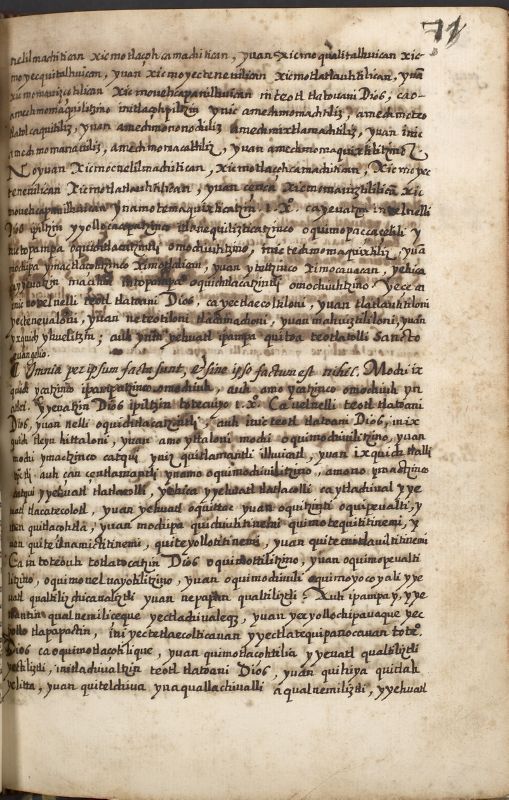 71
nelilmachitican xicmotlaçohcamachitican, yuan xicmoqualitalhuican xic-
moyecquitalhuican, yuan xicmoyectenenilican xicmotlatlauhtilican, yuã
xicmomauizçotilican xicmouehcapanilhuican in teotl tlatouani Dios, ca o-
amechmomaquilitzino initlaçhpiltzin ynic amechmomachtiliz, amechmoteo
tlatolcaquitiliz, yuan amechmononochiliz amechmixtlamachtiliz, yuan inic
amechmomanauiliz, amechmonacaztiliz, yuan amechmomaquixtilitzinoz
Noyuan Xicmocnelilmachitican, xicmotlaçohcamachitican, Xicmoyec
tenenilican Xicmotlatlauhtilican, yuan cenca xicmomauiztililican xic
mouehcapanilhuican ynamotemaquixticatzin I. X.º ca yeuatzin inuelnelli
Dios ipiltzin yyollocacopatzinco ilonequiliztlicatzinco oquimopaccacelili y
nictopampa oquichtlacatzintli omochiuhtzino, inic techmomaquixtiliz, yuã
mochipa ynactlacotitzinco ximotlaliani, yuan ytetzinco ximocauacan, yehica
ca yeuatzin macihui intopampa oquichtlacatzintli omochiuhtzino yece ca
inic uel nelli teotl tlatoani Dios, ca yectlaecoltiloni, yuan tlatlauhtiloni
yectenevaloni, yuan neteotiloni tlacamachoni, yuan mahuiztililoni, yuan
yxquich yhuelitzin; auh ynin yehuatl ipampa quitoa teotlatolli Sancto
Euangelio.
Omnia per ipsum facta sunt, & sine ipso factum est nihil. Mochi ix
quich ycatzinco ipampatzinco omochiuh, auh amo ycatzinco omochiuh yn
atlei. Yyeuatzin Dios ipiltzin totecuiyo I. X.º Ca uelnelli teotl tlatoani
Dios, yuan nelli oquichtlacatzintli auh inic teotl tlatoani Dios, in ix
quich tleyn hittaloni, yuan amo yttaloni mochi oquimochiuilitzino, yuan
mochi ymactzinco catqui ynic quitlamantli ilhuicatl, yuan ixquich tlalli
auh can centlamantli ynamo oquimochiuilitzino, amono ymactzinco
catqui yyehuatl tlatlacolli, yehica yyehuatl tlatlacolli ca ytlachiual yye
uatl tlacatecolotl, yuan yehuatl oquittac yuan oquitzinti oquipeualti, y
uan quitlaçohtla, yuan mochipa quichiuhtinemi quimotequititinemi, y
uan quiteilnamictitinemi, quiteyollotitinemi, yuan quitecuitlauiltitinemi
Ca in toteouh totlatocatzin Dios oquimottitilitzino, yuan oquimopeualti
litzino, oquimonelhuayotilitzino, yuan oquimochiuili oquimoyocoyali yye
uatl qualtilizchicaualiztli yuan nepapan qualtiliztli. Auh ipampay, yye
huantin qualnemiliceque yectlachiualeque, yuan yxyollochipauaque yec
yollo tlapapoctin, ini yectetlaecolticauan yyectlatequipanocauan totº.
Dios ca oquimotlaçotilique, yuan quimotlaçohtilia yyeuatl qualtiliztli
yectiliztli, initlachiualtzin teotl tlatoani Dios, yuan quihiya quitlah
yelitta, yuan quitelchiua ynaquallachiualli aqualnemiliztli, yyehuatl